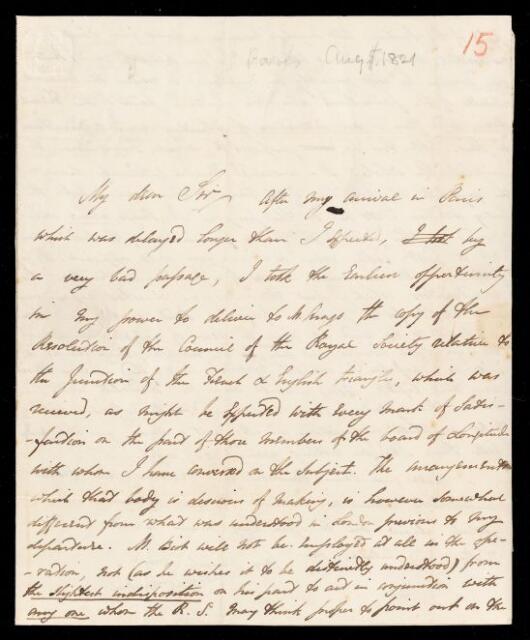 15
Paris Augt 1821
My dear Sir, After my arrival in Paris
which was delayed longer than I expected, by
a very bad passage, I took the Earliest opportunity
in my power to deliver to M. Arago the copy of the
Resolution of the Council of the Royal Society relative to
the Junction of the French & English triangles, which was
received, as might be Expected with Every mark of Satis-
-faction on the part of those members of the board of Longitude
with whom I have conversed on the Subject. The arrangement
which that body is desirous of making, is however Somewhat
different from what was understood in London previous to my
departure. M. Biot will not be Employed at all in the ope-
-ration, not (as he wishes it to be distinctly understood) from
the slightest indisposition on his part to act in conjunction with
any one whom the R. S. may think proper to point out on the